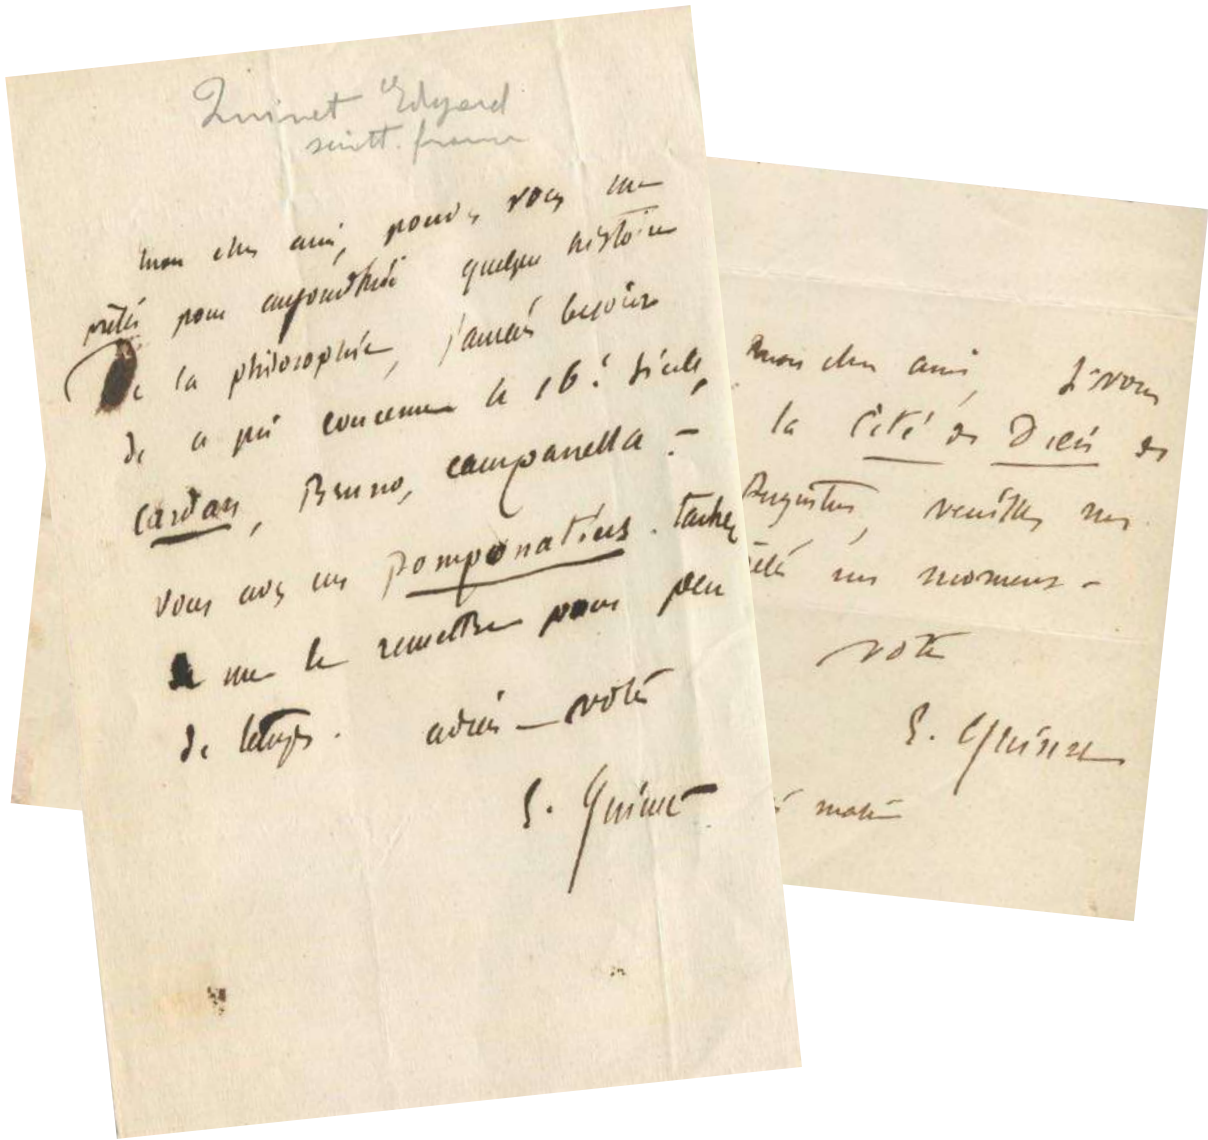 Quinet Edgard
mon cher ami, pouvez vous me
prêter pour aujourdhui quelque histoire
de la philosophie, j'aurais besoin
de ce qui concerne le 16e siècle,
cardan, Bruno, campanella. –
vous avez un pomponatius. tachez
de me le remettre pour peu
de temps. adieu – votre
E. Quinet
mon cher ami, Si vous
la Cité de Dieu de
Augustin, veuillez me
un moment –
votre
E. Quinet
matin